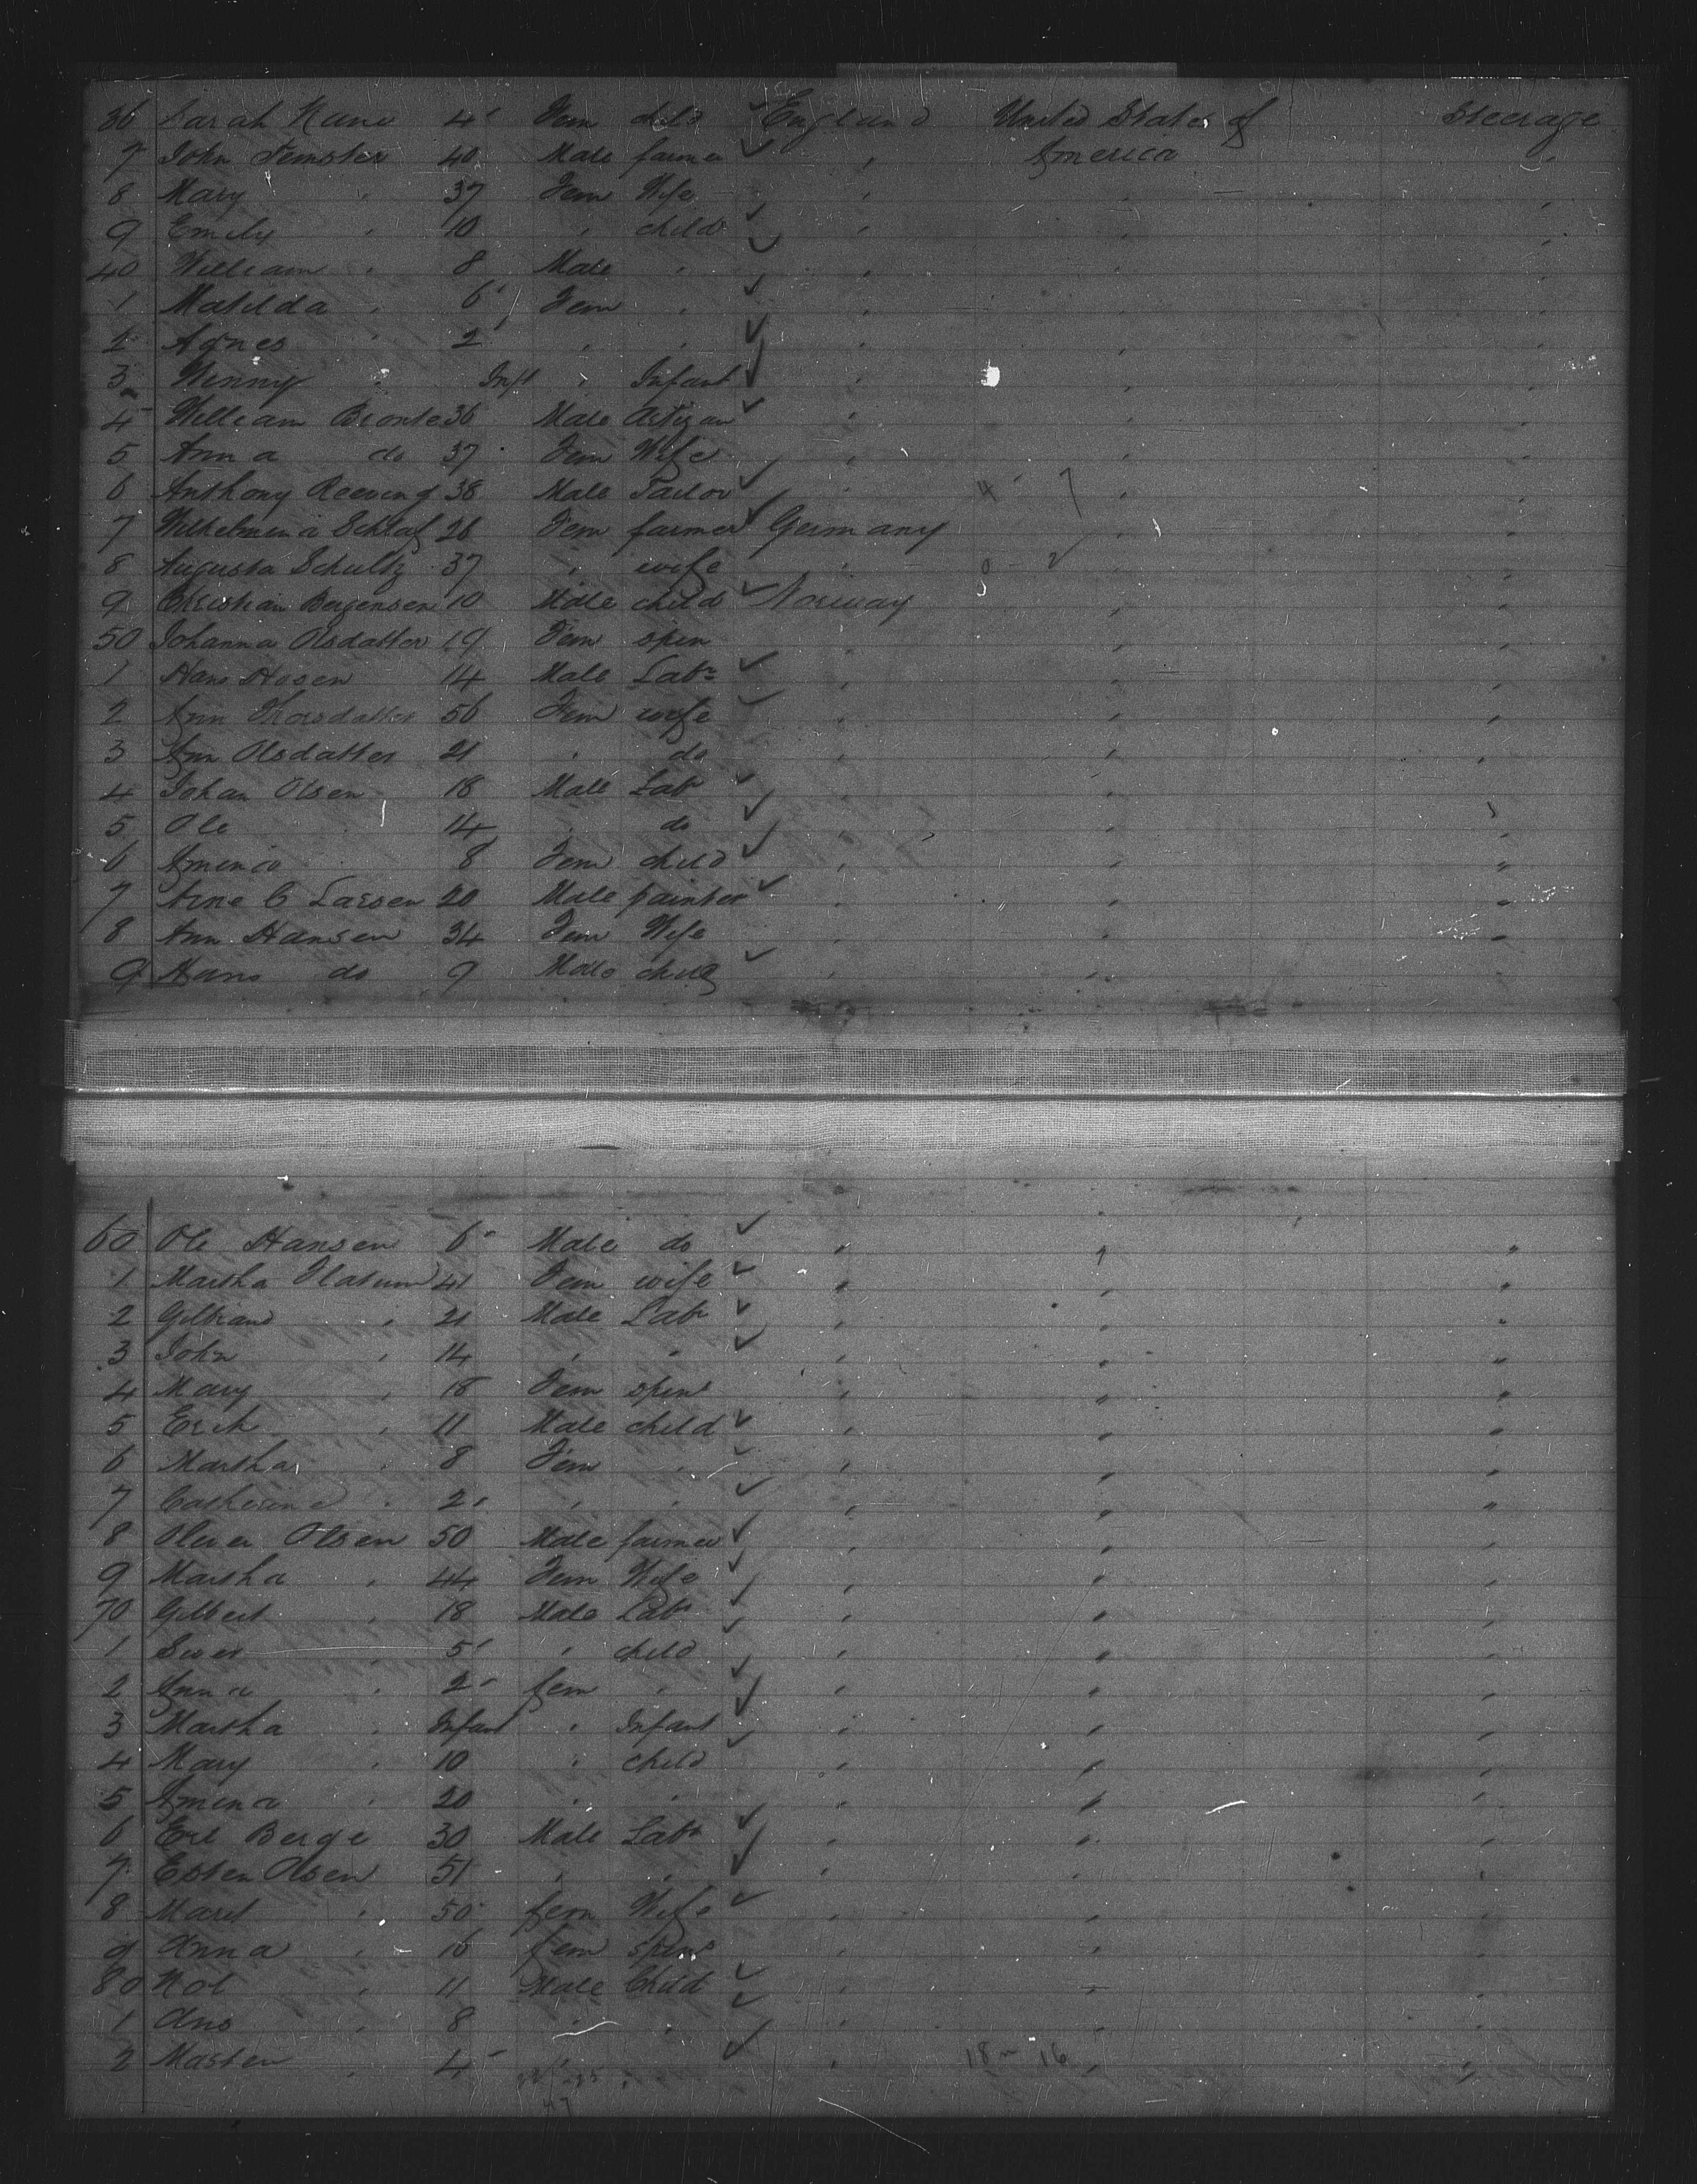 36 Sarah Kane 4 Fem child England United States of Steerage
7 John Femster 40 Male farmer " America "
8 Mary " 37 Fem Wife " " "
9 Emily " 10 " child " " "
40 William " 8 Male " " " "
1 Matilda " 6 Fem " " " "
2 Agnes " 2 " " " " "
3 Winny " Inft " Infant " " "
4 William Bronte 36 Male Artizan " " "
5 Anna do 37 Fem Wife " " "
6 Anthony Reeving 38 Male Tailor " 4 7 " "
7 Wilhelmina Schlaf 26 Fem farmer Germany " "
8 Augusta Schultz 37 " wife " 0 2 " "
9 Christian Bergensen 10 Male child Norway " "
50 Johanna Olsdatter 19 Fem spin " " "
1 Hans Hosen 14 Male Labr " " "
2 Ann Thorsdatter 56 Fem wife " " "
3 Ann Olsdatter 21 " do " " "
4 Johan Olsen 18 Male Labr " " "
5 Ole " 14 " do " " "
6 Amenco " 8 Fem child " " "
7 Arne C Larsen 20 Male painter " " "
8 Ann Hansen 34 Fem Wife " " "
9 Hans do 9 Male child " " "
60 Ole Hansen 6 Male do " " "
1 Martha Flatum 41 Fem wife " " "
2 Gilbrand " 21 Male Labr " " "
3 John " 14 " " " " "
4 Mary " 18 Fem spin " " "
5 Erik " 11 Male child " " "
6 Martha " 8 Fem " " " "
7 Catherine " 2 " " " " "
8 Olever Olsen 50 Male farmer " " "
9 Martha " 44 Fem Wife " " "
70 Gilbert " 18 Male Labr " " "
1 Siver " 5 " child " " "
2 Anna " 2 fem " " " "
3 Martha " Infant " Infant " " "
4 Mary " 10 " child " " "
5 Amena " 20 " " " " "
6 Erl Berge 30 Male Labr " " "
7 Esten Olsen 51 " " " " "
8 Marit " 50 fem Wife " " "
9 Anna " 16 fem spin " " "
80 Nol " 11 Male Child " " "
1 Ans " 8 " " " " "
2 Masten " 4 " " " 18 16 " "
47